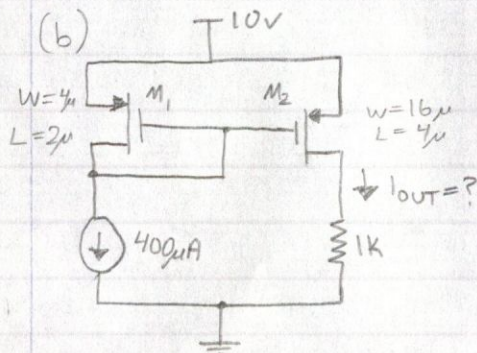 (b)
10V
W=4μ
L=2μ
M1
M2
W=16μ
L=4μ
IOUT=?
400μA
1K